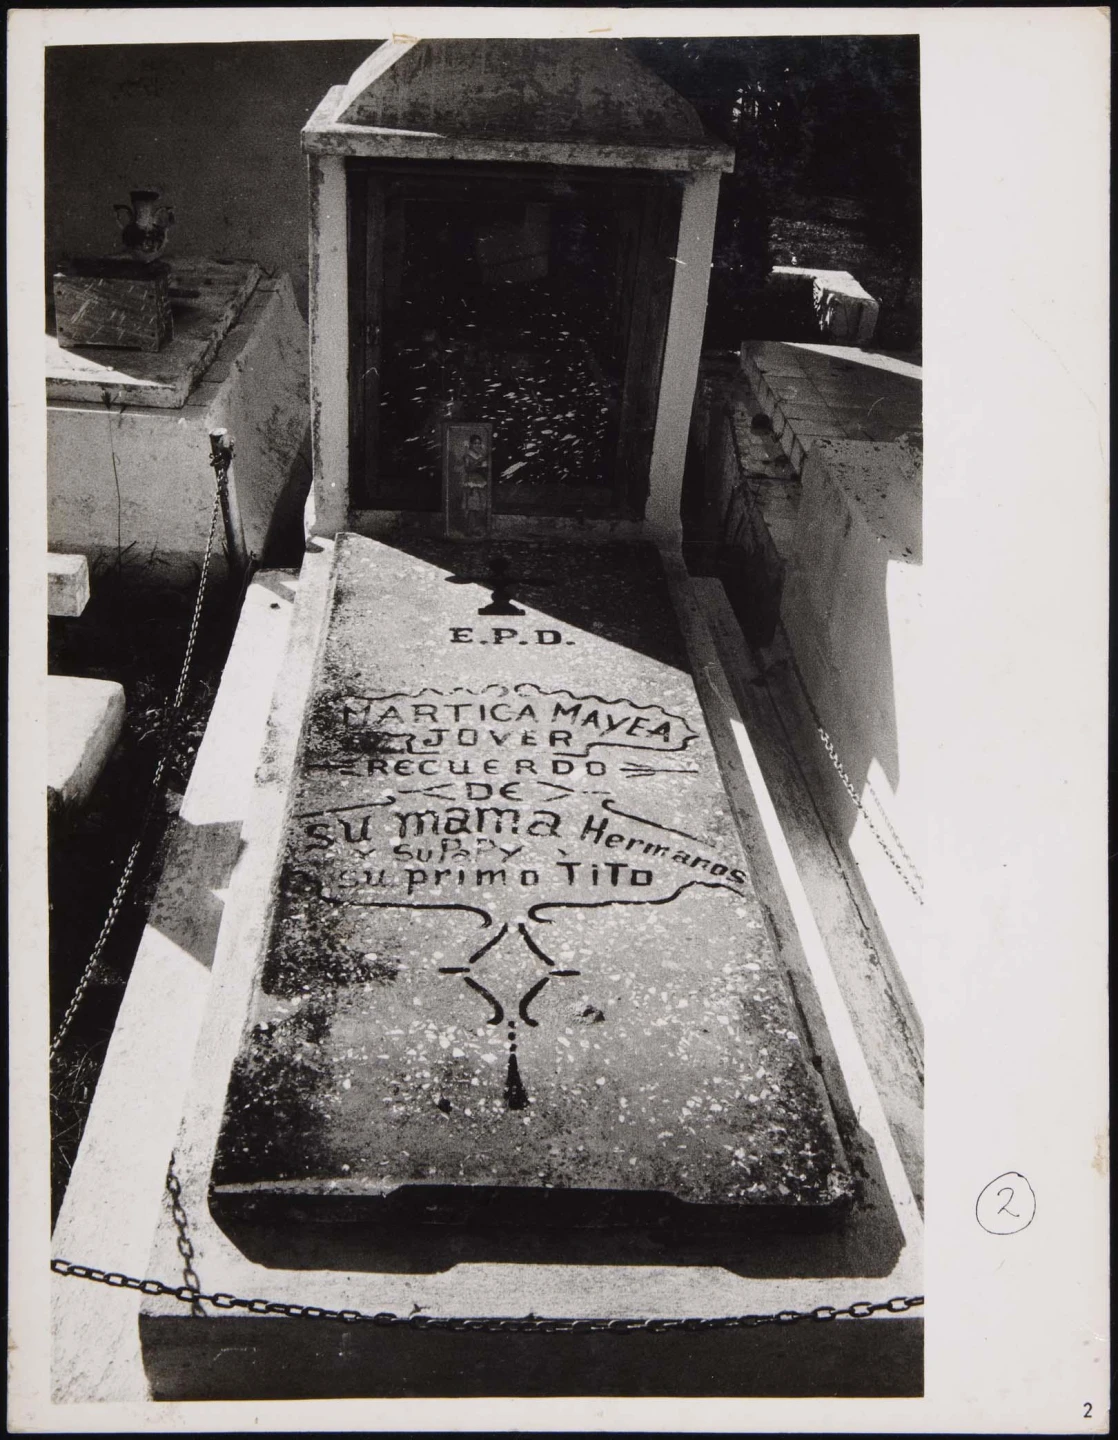 E.P.D.
MARTICA MAYEA
JOVER
RECUERDO
DE
su mama Hermanos
Y SU PAPY Y
su primo TITO
2
2